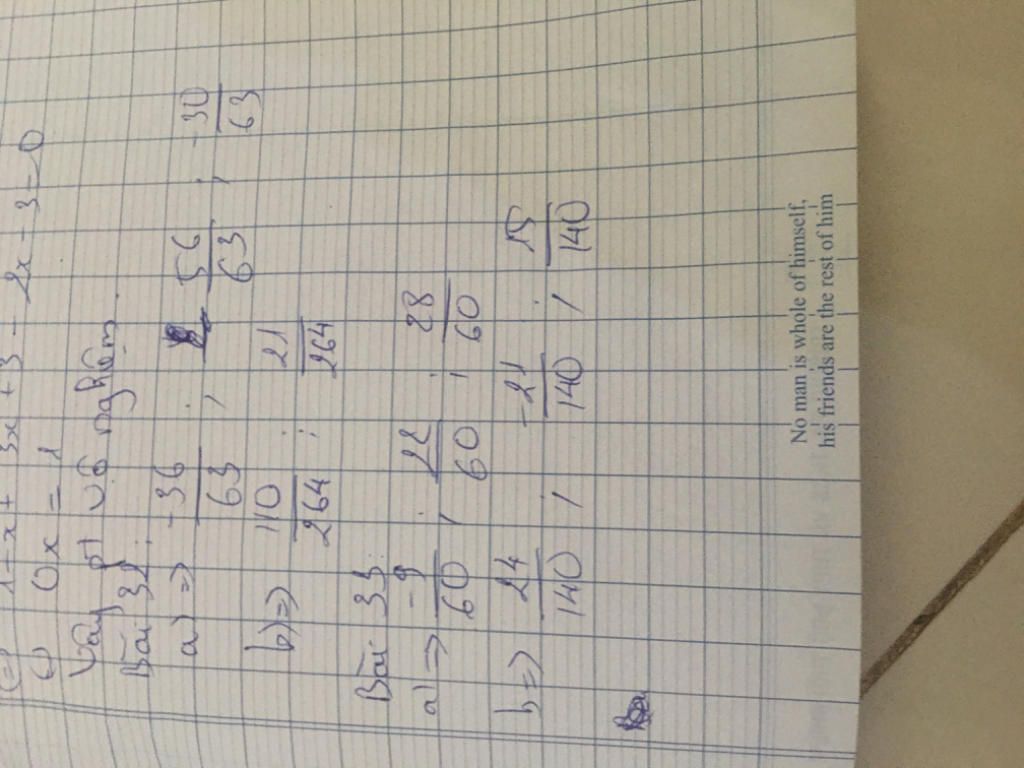 1 - x + 3x + 3 - 2x - 3 = 0
0x = 1
Vậy pt vô nghiệm.
Bài 32:
a) => -36/63 ; 56/63 ; -30/63
b) => 110/264 ; 21/264
Bài 33:
a) => -9/60 ; 22/60 ; 28/60
b => 24/140 ; -21/140 ; 15/140
No man is whole of himself,
his friends are the rest of him